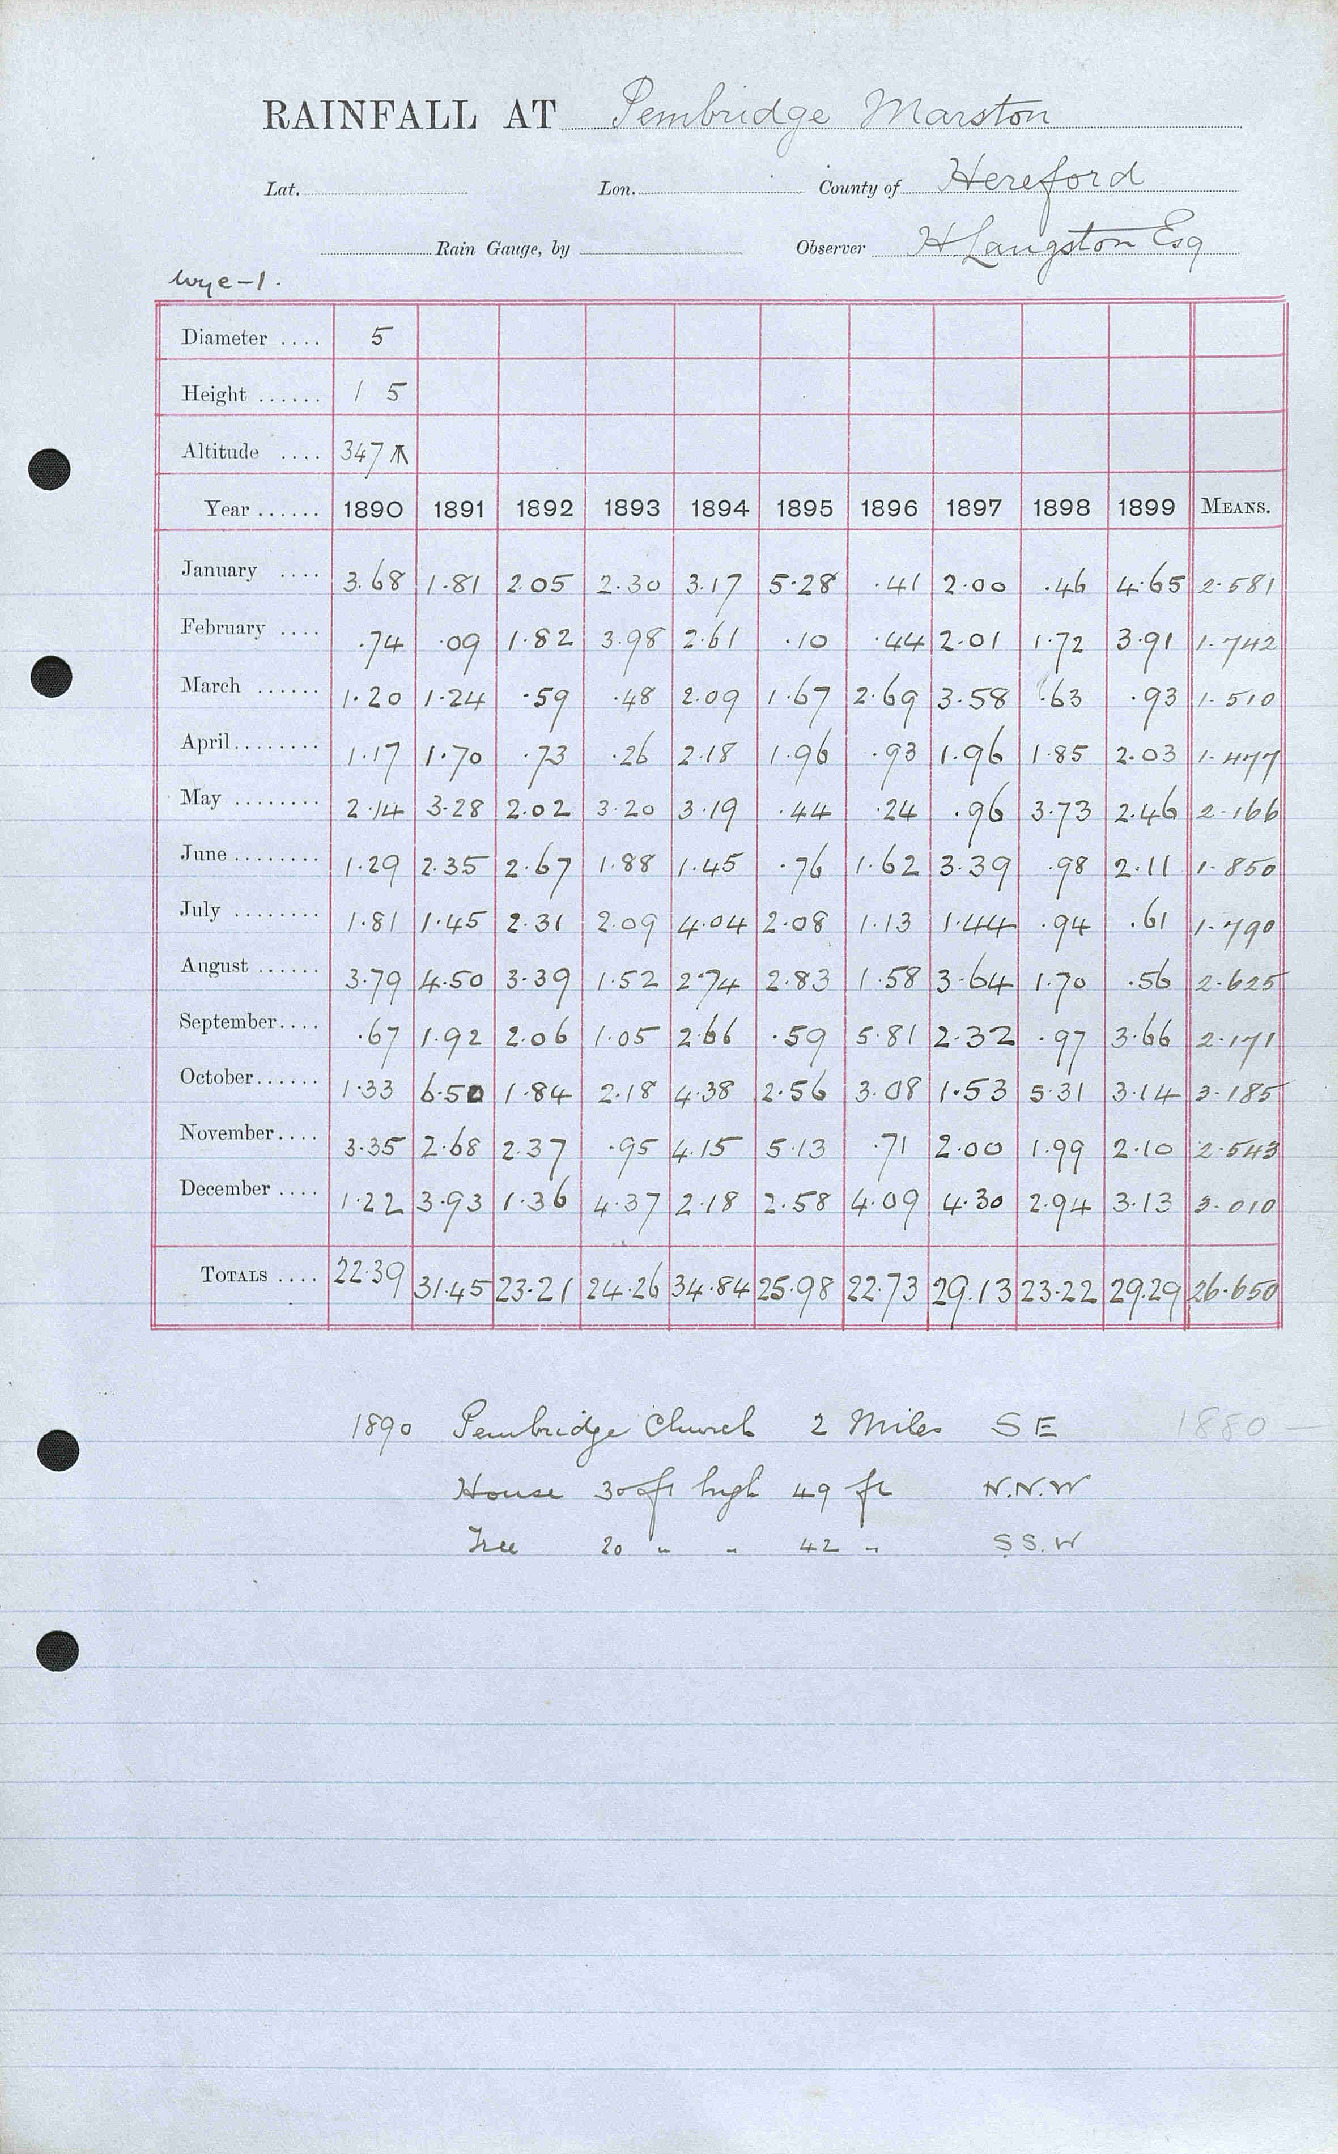 RAINFALL AT Pembridge Marston
Lat. Lon. County of Hereford
Rain Gauge, by Observer H Langston Esq
Wye-1.
Diameter .... 5
Height ...... 1 5
Altitude .... 347
Year ...... 1890 1891 1892 1893 1894 1895 1896 1897 1898 1899 MEANS.
January .... 3.68 1.81 2.05 2.30 3.17 5.28 .41 2.00 .46 4.65 2.581
February .... .74 .09 1.82 3.98 2.61 .10 .44 2.01 1.72 3.91 1.742
March ...... 1.20 1.24 .59 .48 2.09 1.67 2.69 3.58 .63 .93 1.510
April........ 1.17 1.70 .73 .26 2.18 1.96 .93 1.96 1.85 2.03 1.477
May ........ 2.14 3.28 2.02 3.20 3.19 .44 .24 .96 3.73 2.46 2.166
June ........ 1.29 2.35 2.67 1.88 1.45 .76 1.62 3.39 .98 2.11 1.850
July ........ 1.81 1.45 2.31 2.09 4.04 2.08 1.13 1.44 .94 .61 1.790
August ...... 3.79 4.50 3.39 1.52 2.74 2.83 1.58 3.64 1.70 .56 2.625
September.... .67 1.92 2.06 1.05 2.66 .59 5.81 2.32 .97 3.66 2.171
October...... 1.33 6.50 1.84 2.18 4.38 2.56 3.08 1.53 5.31 3.14 3.185
November.... 3.35 2.68 2.37 .95 4.15 5.13 .71 2.00 1.99 2.10 2.543
December .... 1.22 3.93 1.36 4.37 2.18 2.58 4.09 4.30 2.94 3.13 3.010
TOTALS .... 22.39 31.45 23.21 24.26 34.84 25.98 22.73 29.13 23.22 29.29 26.650
1890 Pembridge Church 2 Miles S E 1880 -
House 30 ft high 49 ft N.N.W
Tree 20 " " 42 " S S. W